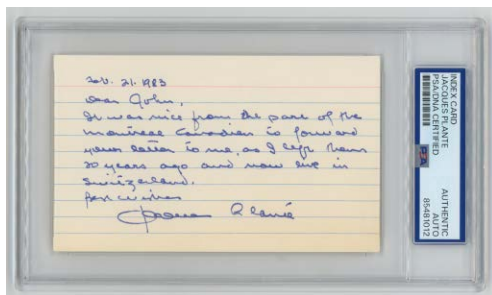 21. 1983
Dear John,
It was nice from the part of the
montreal Canadien to forward
your letter to me, as I left them
20 years ago and now live in
Switzerland.
Best wishes
Jacques Plante
INDEX CARD
JACQUES PLANTE
PSA/DNA CERTIFIED
PSA
AUTHENTIC
AUTO
85481012